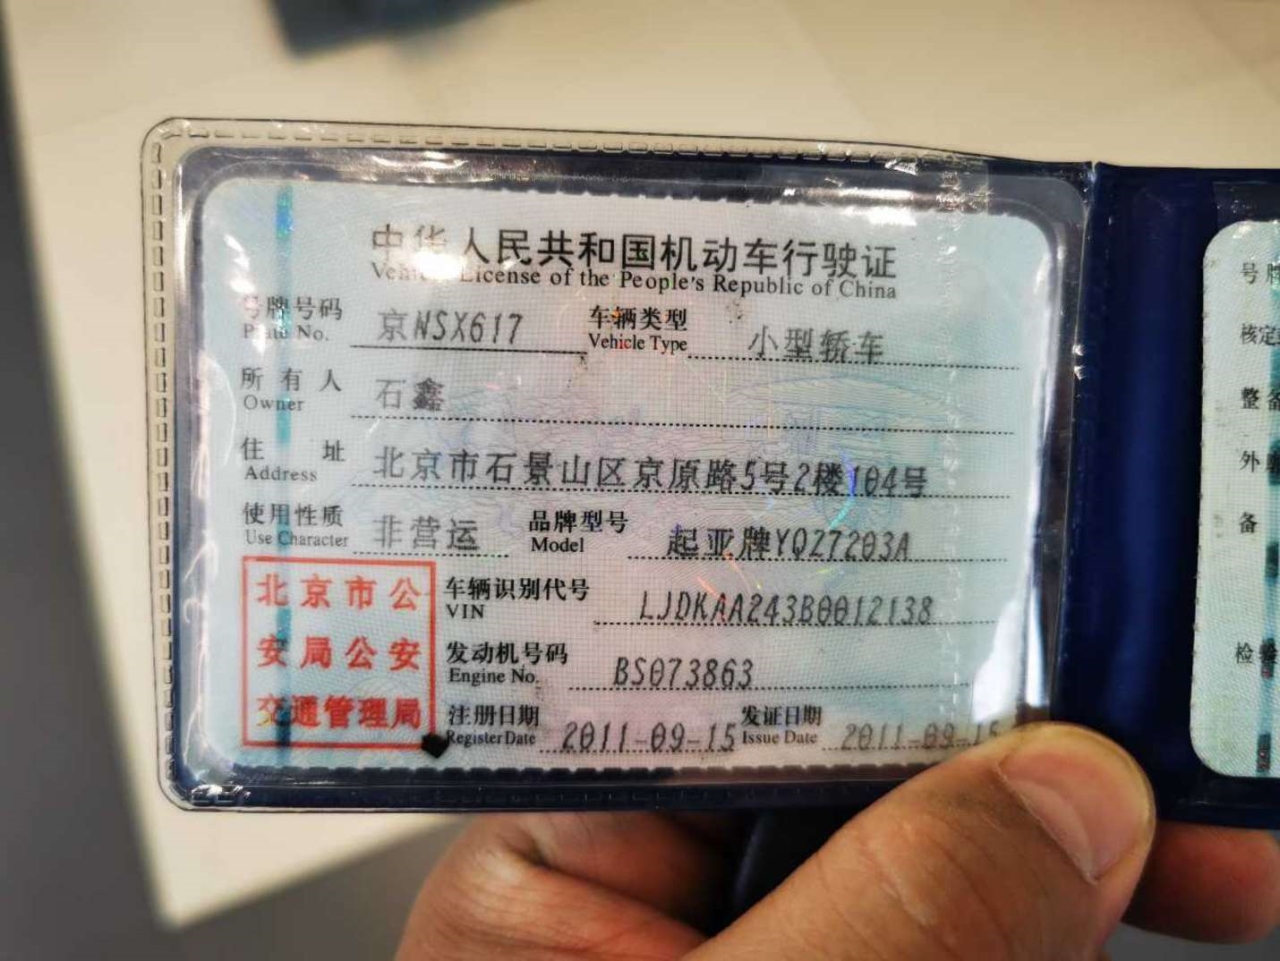 中华人民共和国机动车行驶证
Vehicle License of the People's Republic of China
号牌号码 京NSX617 车辆类型 小型轿车
Plate No. Vehicle Type
所有人 石鑫
Owner
住址 北京市石景山区京原路5号2楼104号
Address
使用性质 非营运 品牌型号 起亚牌YQZ7203A
Use Character Model
北京市公
安局公安
交通管理局
车辆识别代号 LJDKAA243B0012138
VIN
发动机号码 BS073863
Engine No.
注册日期 2011-09-15 发证日期 2011-09-15
Register Date Issue Date
号牌
核定
整备
外
备
检验